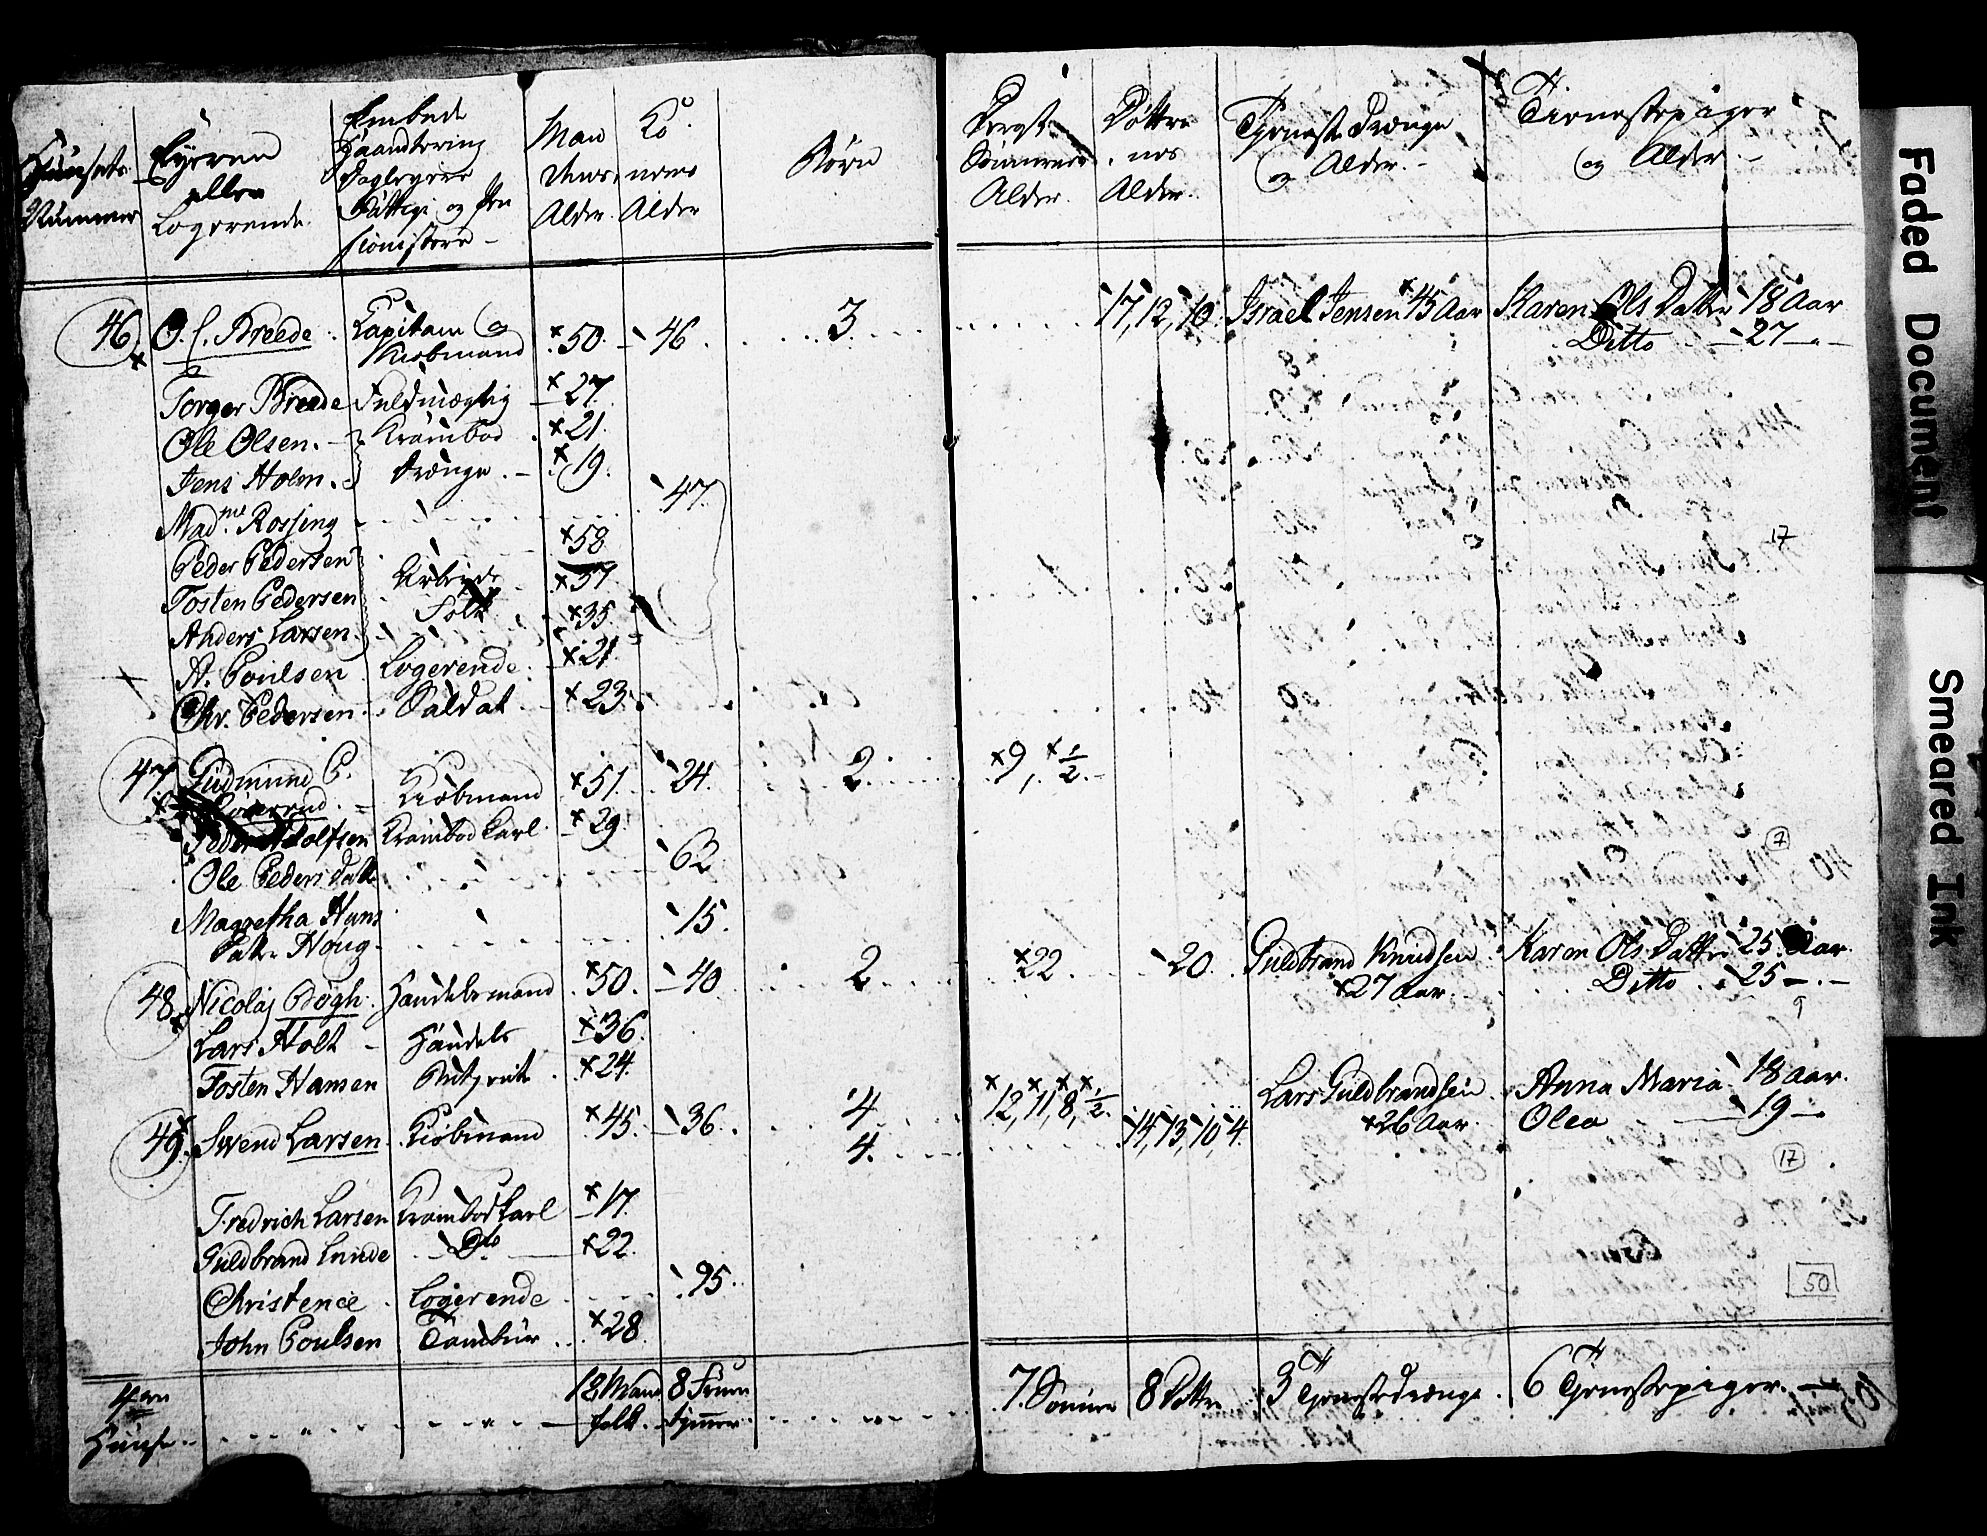 Huusets Nummer
Eyeren eller Logerende
Embede Haandtering
Mandenes Alder
Konens Alder
Børn
Alder
Døttrenes Alder
Tjeneste Drænge og Alder
Tienestepiger og Alder
46 O. C. Breede Capitain og Kiøbmand 50 46 3 17, 12, 10 Israel Jensen 45 Aar Karen Ols Datter 18 Aar
Ditto 27
Torger Breede Fuldmægtig 27
Ole Olsen Krambod 21
Jens Holm drænge 19
Madme Rossing 47
Peder Pedersen 58
Tosten Pedersen Arbejds Folk 57
Anders Larsen 35
A. Poulsen Logerende 21
Chr. Pedersen Saldat 23
17
47 Gudmund P. Kiøbmand 51 24 2 9, 1/2
Peder Adolfsen Krambod Karl 29
7
Ole Peders Datter 62
Magretha Hans 15
Datter Houg
48 Nicolaj Bøgh Handelsmand 50 40 2 22 20 Guldbrand Knudsen 27 Aar Karen Ols Datter 25 Aar
Ditto 25
9
Lars Holt Handels 36
Tosten Hansen 24
49 Svend Larsen Kiøbmand 45 36 4 12, 11, 8, 1/2 Lars Guldbrandsen 26 Aar Anna Maria 18 aar
4 14, 13, 10, 4 Olea 19
17
Fredrich Larsen Krambod Karl 17
Guldbrand Lunde Do 22
Christence Logerende 95
50
John Poulsen Tambur 28
4re Huuse 18 Mandfolk 8 Fruentimmer 7 Sønner 8 Døttre 3 Tjenestedrænge 6 Tjenestepiger
Faded Document
Smeared Ink